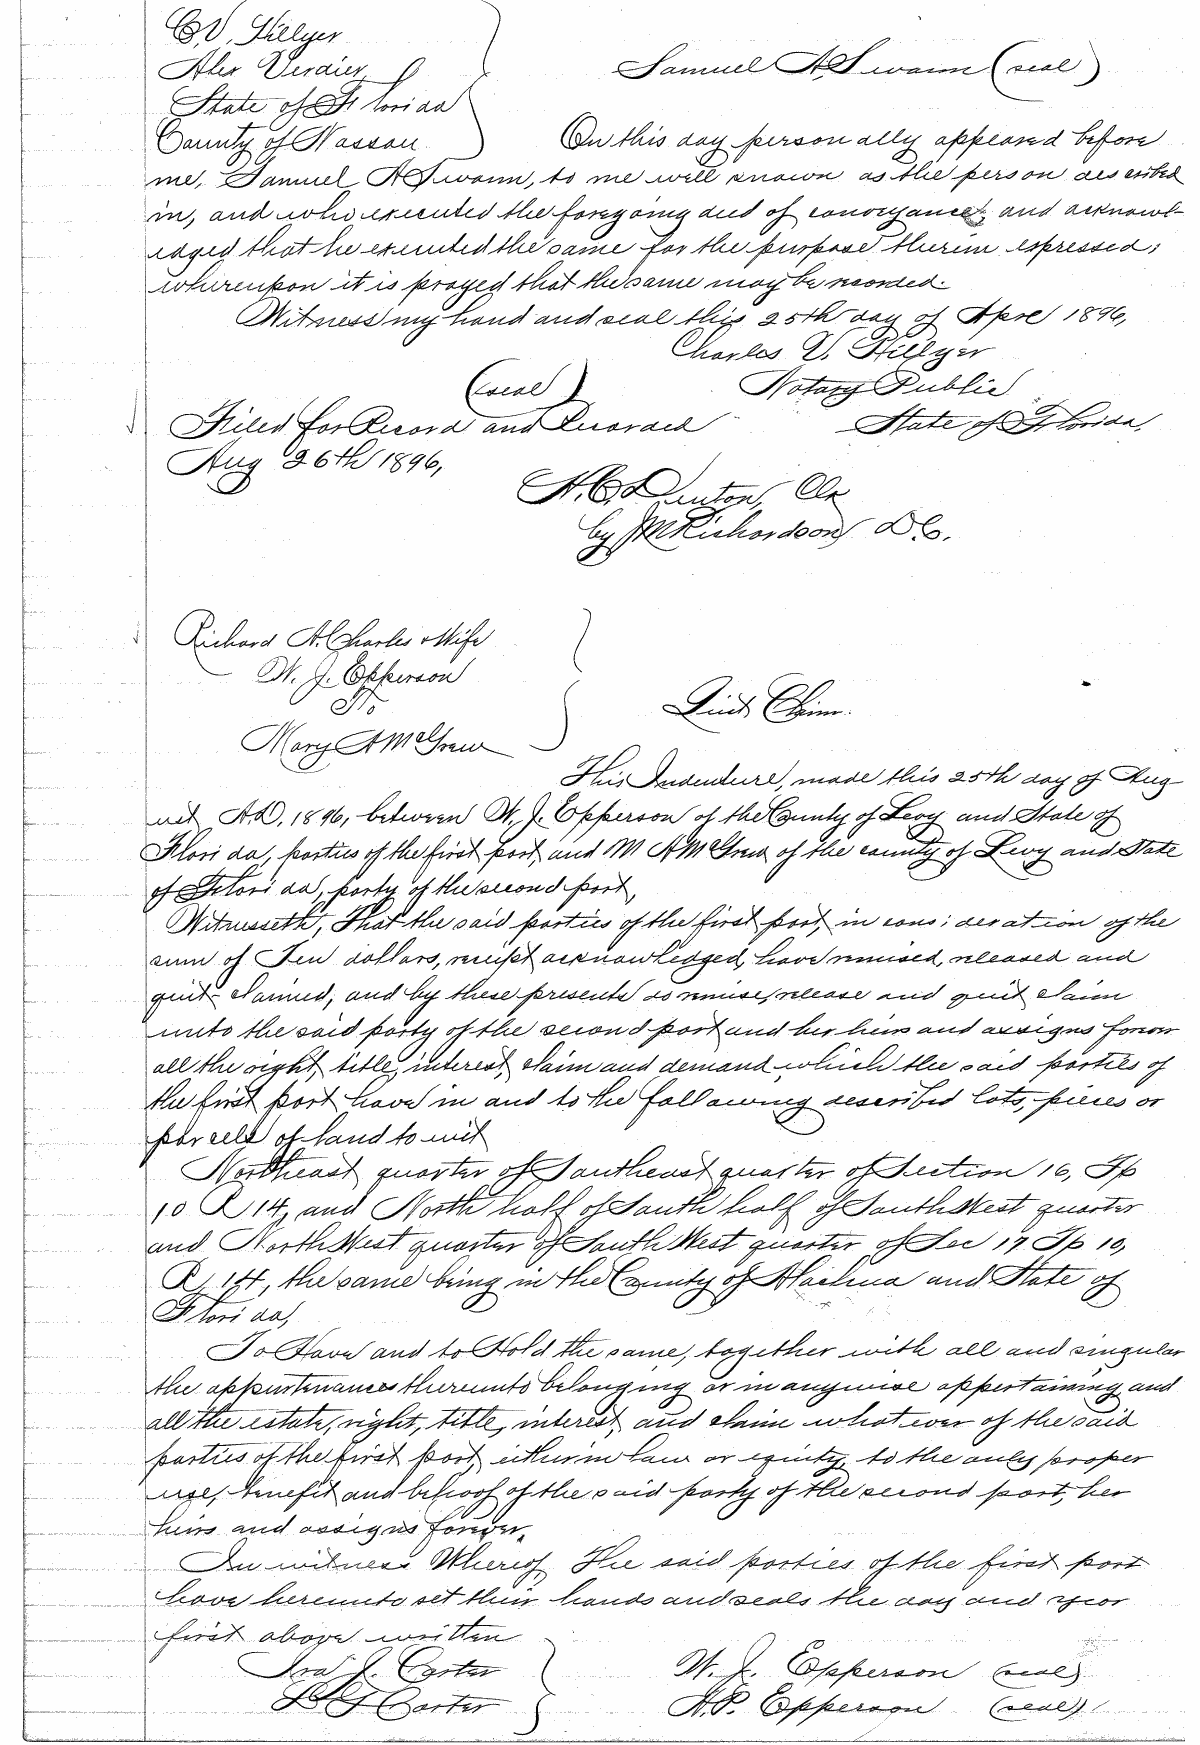 C.V. Hillyer
Alex Verdier
Samuel A Swann (seal)
State of Florida
County of Nassau
On this day personally appeared before
me, Samuel A Swann, to me well known as the person described
in, and who executed the foregoing deed of conveyance, and acknowl-
edged that he executed the same for the purpose therein expressed;
whereupon it is prayed that the same may be recorded.
Witness my hand and seal this 25th day of Apre 1896,
Charles V. Hillyer
(seal) Notary Public
Filed for Record and Recorded State of Florida,
Aug 26th 1896,
H.C. Denton, Clk
by JM Richardson D C.
Richard H. Charles & Wife
W. J. Epperson
To
Quit Claim.
Mary A McGrew
This Indenture, made this 25th day of Aug
ust A.D. 1896, between W. J. Epperson of the County of Levy and State of
Florida, parties of the first part, and M A McGrew of the county of Levy and State
of Florida, party of the second part,
Witnesseth, That the said parties of the first part, in consideration of the
sum of Ten dollars, receipt acknowledged, have remised, released and
quit-claimed, and by these presents do remise, release and quit claim
unto the said party of the second part and her heirs and assigns forever
all the right, title, interest, claim and demand which the said parties of
the first part have in and to the following described lots, pieces or
parcels of land to wit
Northeast quarter of Southeast quarter of Section 16, Tp
10 R 14, and North half of South half of SouthWest quarter
and NorthWest quarter of SouthWest quarter of Sec 17 Tp 10,
R, 14, the same being in the County of Alachua and State of
Florida,
To Have and to Hold the same, together with all and singular
the appurtenances thereunto belonging or in anywise appertaining and
all the estate, right, title, interest, and claim what ever of the said
parties of the first part, either in law or equity, to the only proper
use, benefit and behoof of the said party of the second part, her
heirs and assigns forever,
In witness Whereof, The said parties of the first part
have hereunto set their hands and seals the day and year
first above written
Ira J. Carter W. J. Epperson (seal)
Carter A.P. Epperson (seal)